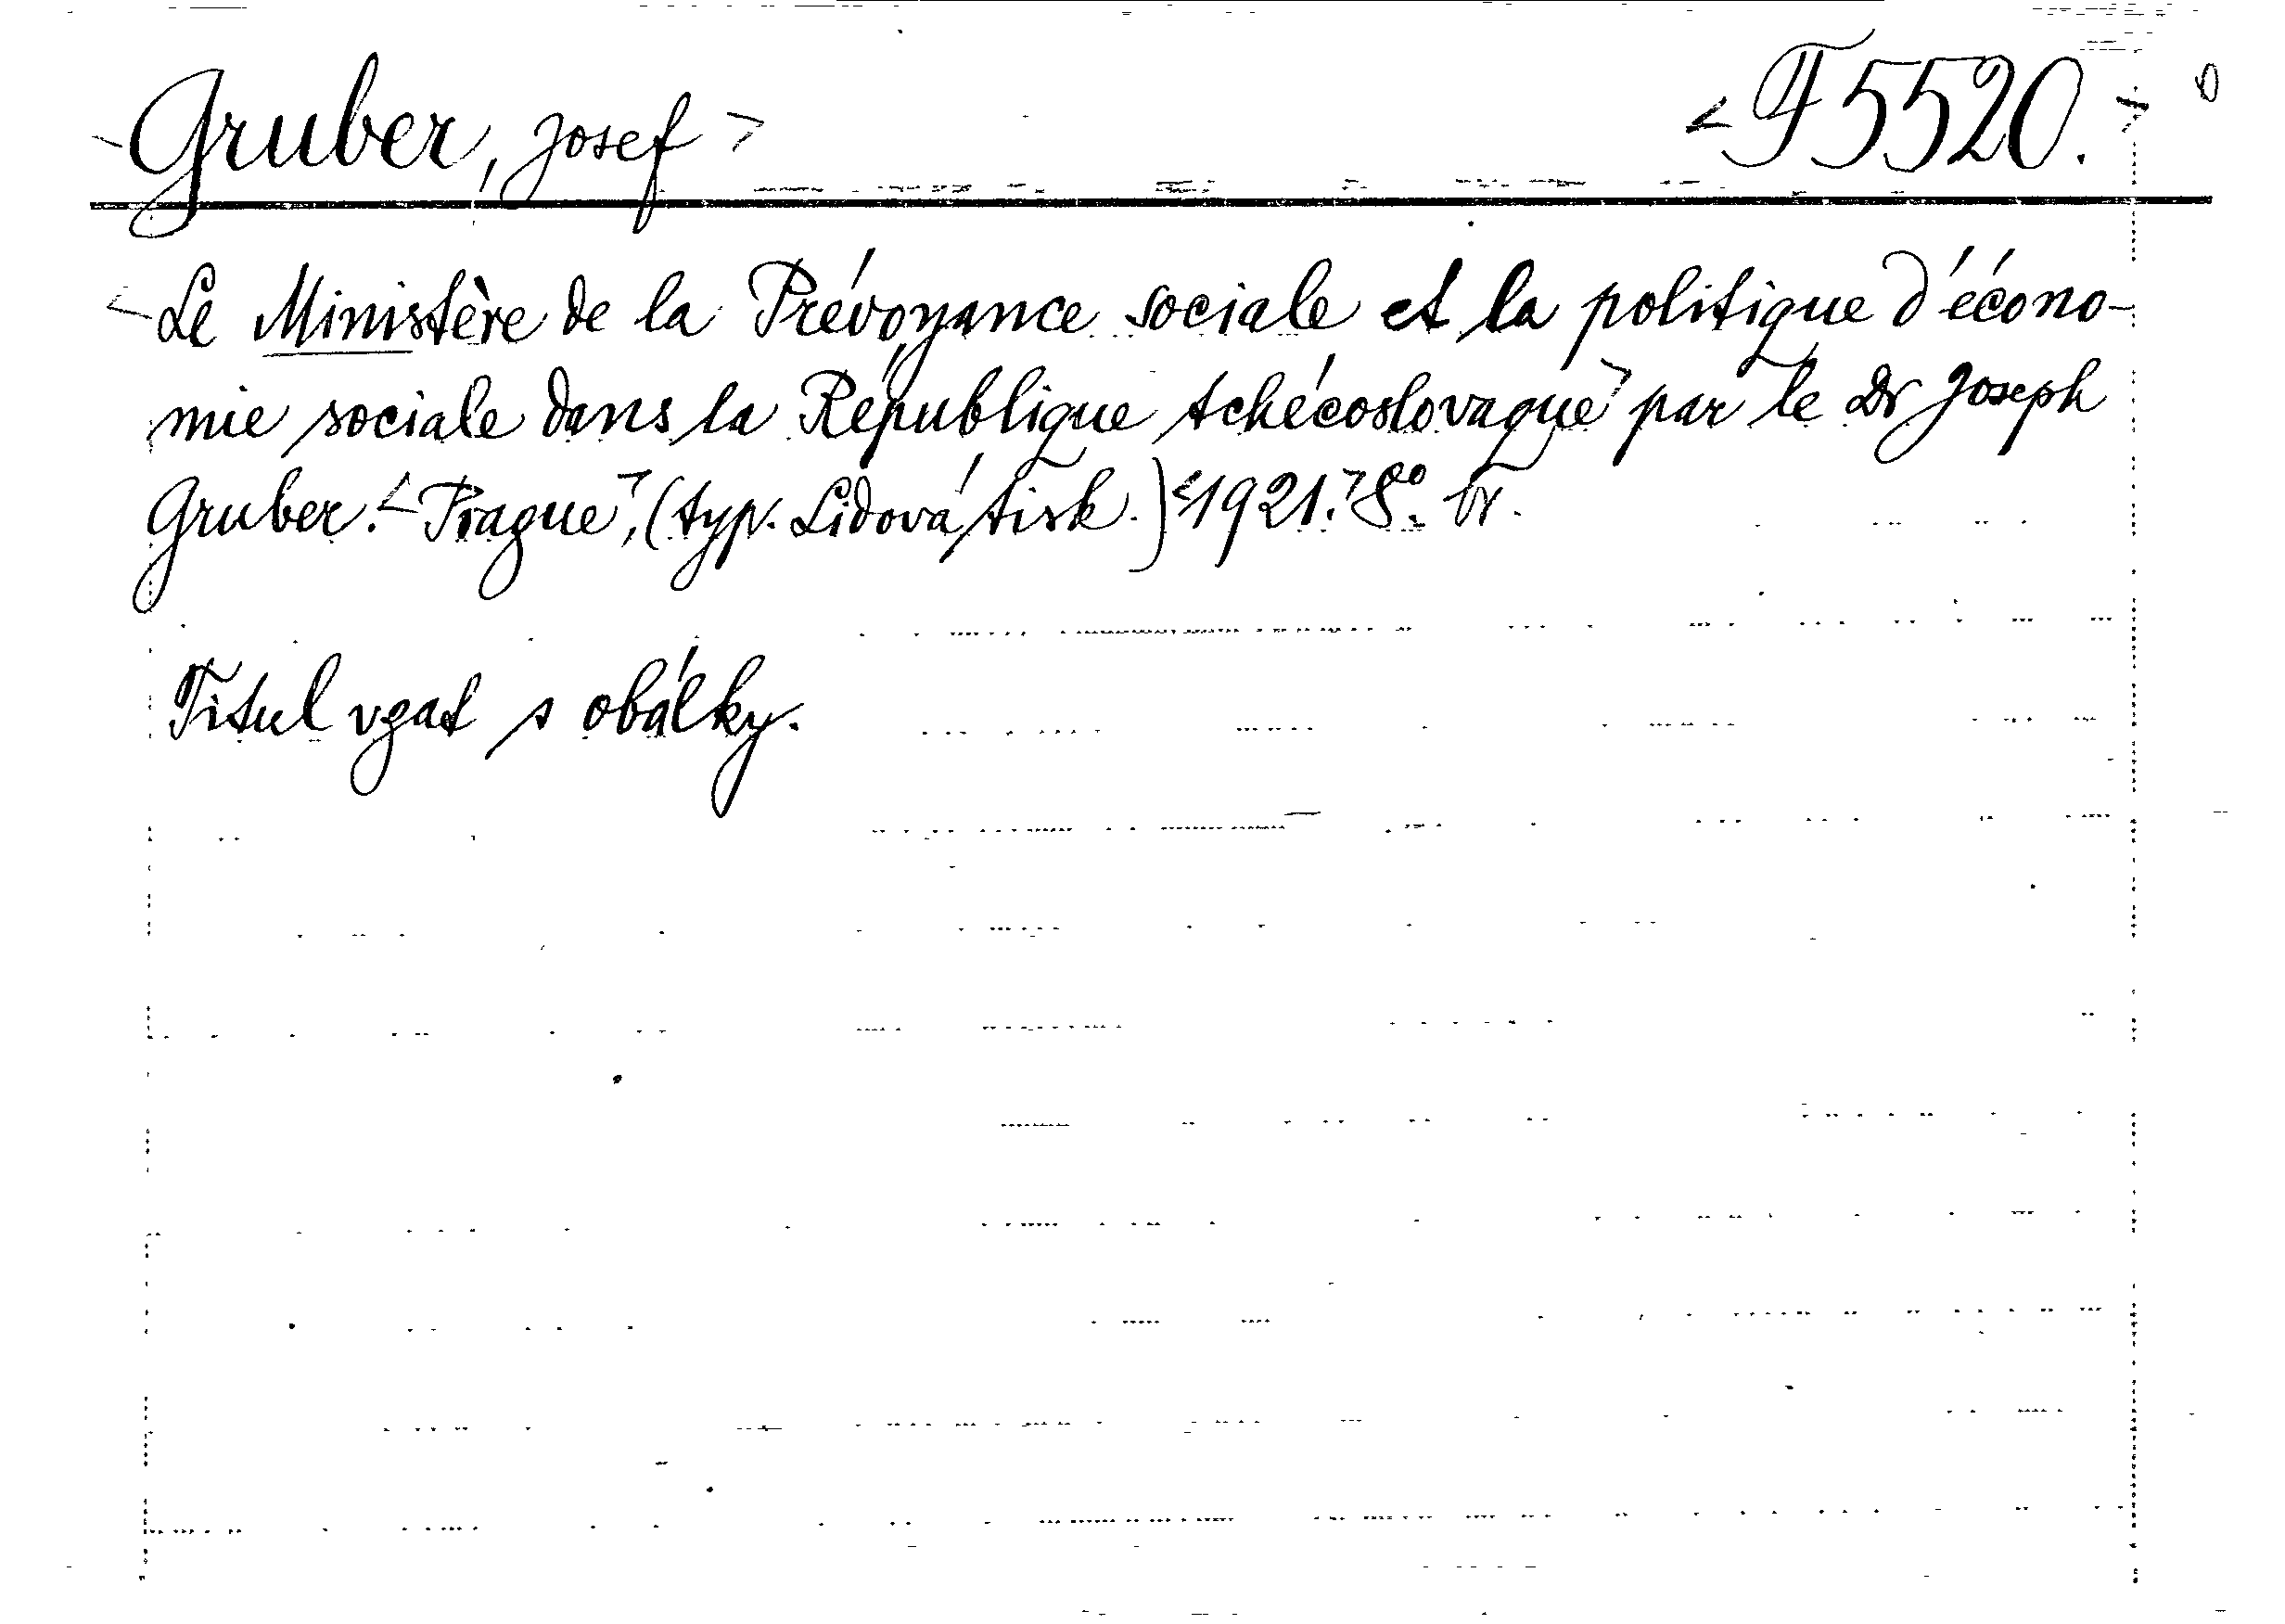 <Gruber, Josef> <F 5520.>
<Le Ministère de la Prévoyance sociale et la politique d'écono-
mie sociale dans la République tchécoslovaque> par le Dr Joseph
Gruber. <Prague>, (typ. Lidová tisk.) <1921.> 8°. Br.
Titul vzat s obálky.